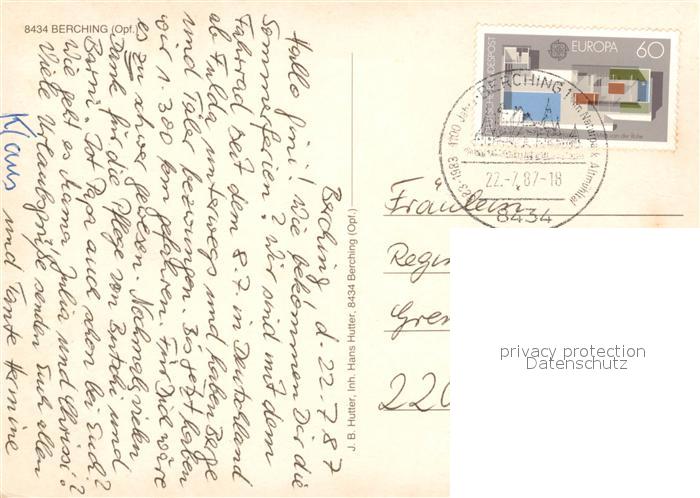 8434 BERCHING (Opf.)
Berching, d. 22.7.87
Hallo Gini! Wie bekommen Dir die
Sommerferien? Wir sind mit dem
Fahrrad seit dem 8.7 in Deutschland
ab Fulda unterwegs und haben Berge
und Täler bezwungen. Bis jetzt haben
wir 1.300 km gefahren. Für Dich wäre
es zu schwer gewesen. Nochmals vielen
Dank für die Pflege von Butschi und
Bärni. Ist Papa auch schon bei Euch?
Wie geht es Mama, Julia und Chrissi?
Viele Urlaubsgrüße senden Euch allen
Klaus und Tante Hermine
J. B. Hutter, Inh. Hans Hutter, 8434 Berching (Opf.)
DEUTSCHE BUNDESPOST
EUROPA 60
1100 Jahre BERCHING 1
im Naturpark Altmühltal
883-1983
22.-7.87-18
8434
Fräulein
Regin
Gren
220
privacy protection
Datenschutz